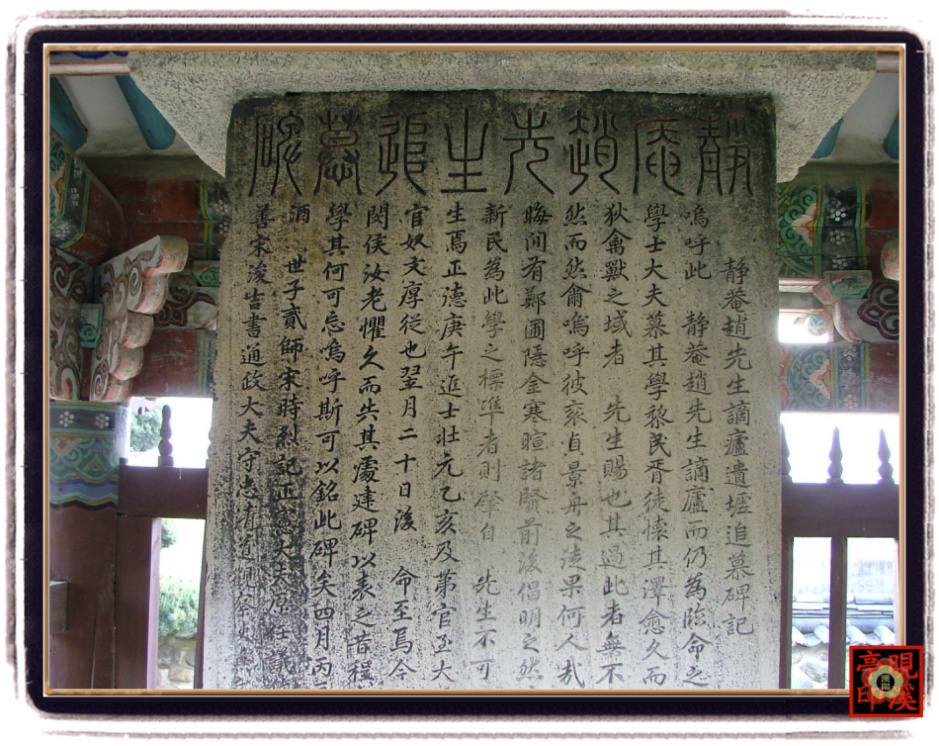 靜庵趙先生追慕碑
静菴趙先生謫廬遺墟追慕碑記
嗚呼此 静菴趙先生謫廬而仍為臨命之
學士大夫慕其學黎民胥徒懷其澤愈久而
狄禽獸之域者 先生賜也其過此者無不
然而然會嗚呼彼袞貞景舟之法果何人哉
晦間有鄭圃隱金寒暄諸賢前後倡明之然
新民為此學之標準者則肇自 先生不可
生焉正德庚午進士壯元乙亥及第官至大
官奴文厚從也翌月二十日後 命至焉今
閔侯汝老懼久而共其處建碑以表之昔程
學其何可忘嗚呼斯可以銘此碑矣四月丙
酒 世子貳師宋時烈記正憲大夫原任議
善宋浚吉書通政大夫守忠清道觀察
亮印